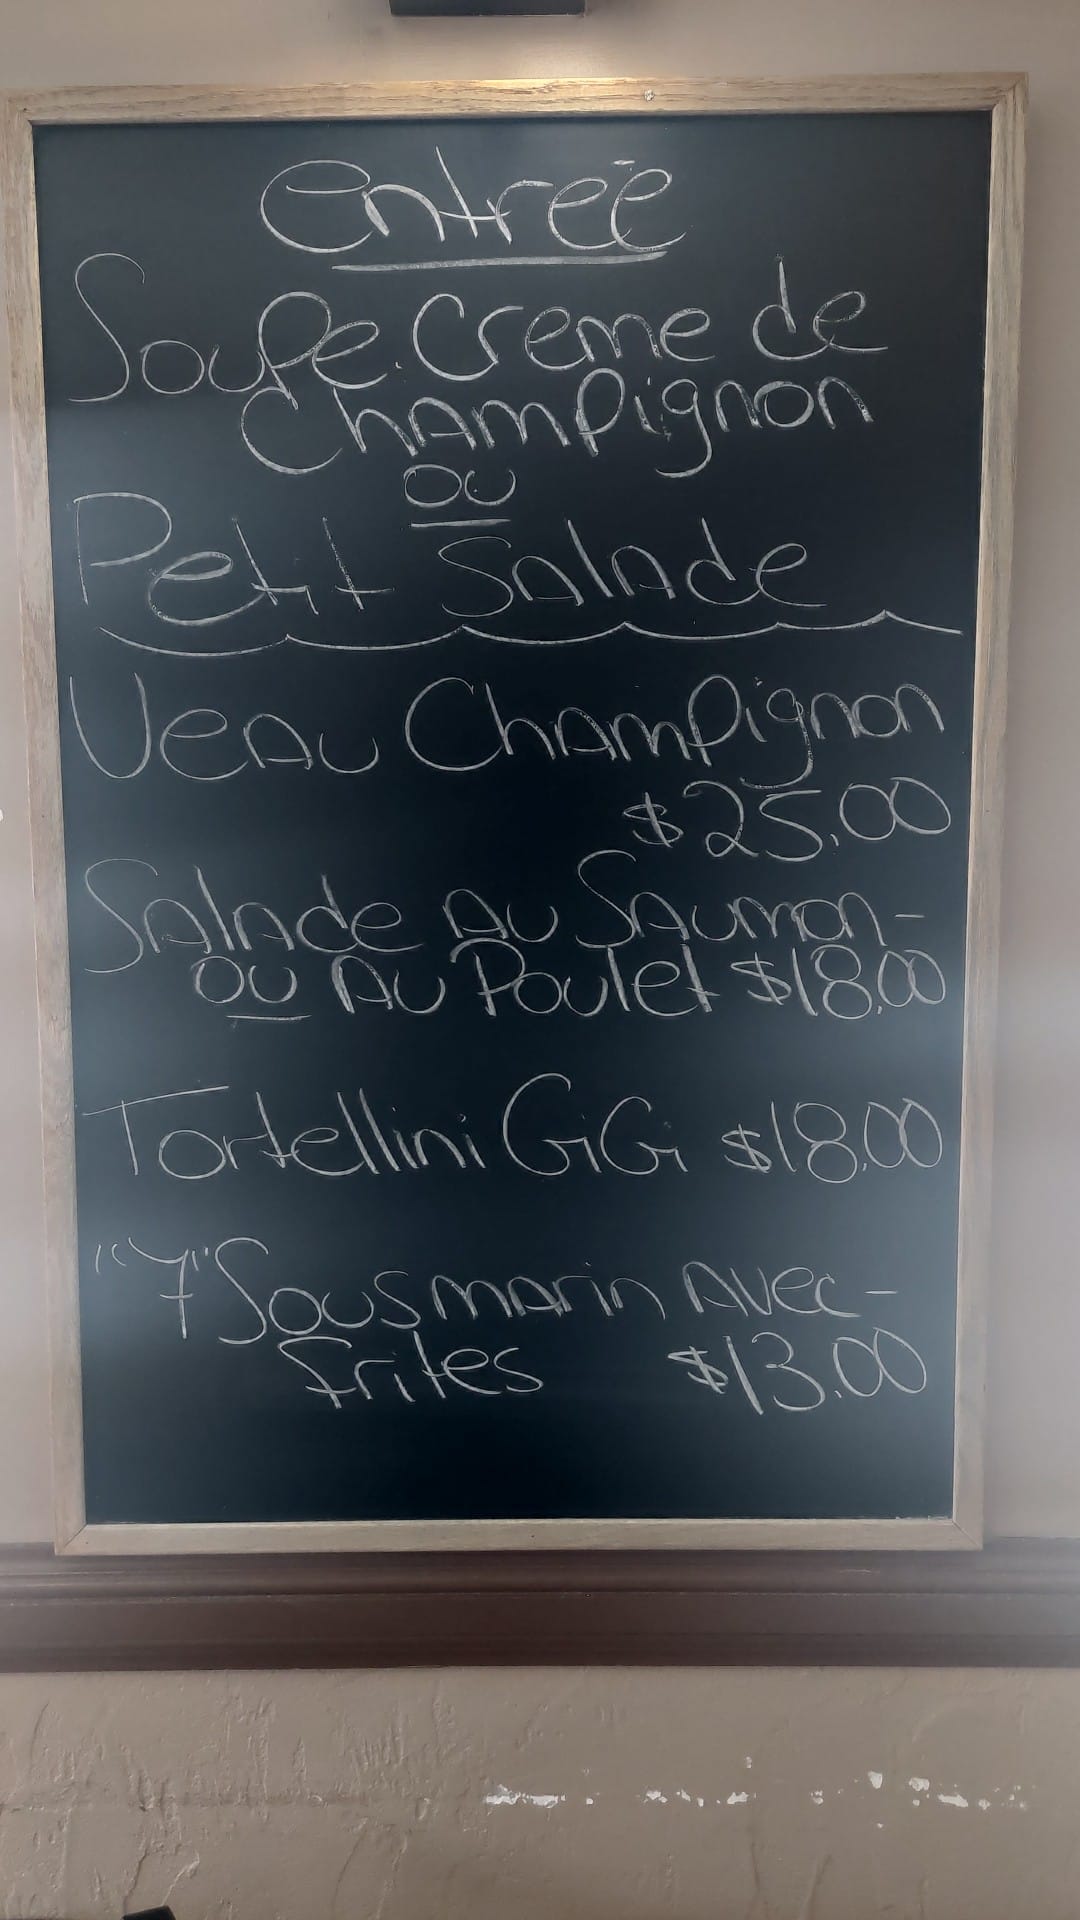 entreē
Soupe Creme de
Champignon
ou
Petit Salade
Veau Champignon
$25.00
Salade Au Saumon-
ou Au Poulet $18.00
Tortellini GiGi $18.00
"7" Sousmarin Avec-
frites $13.00